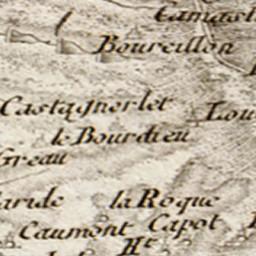 Boureillon
Castagnerlet
Lou
le Bourdieu
Greau
la Roque
Caumont Capot
Ht